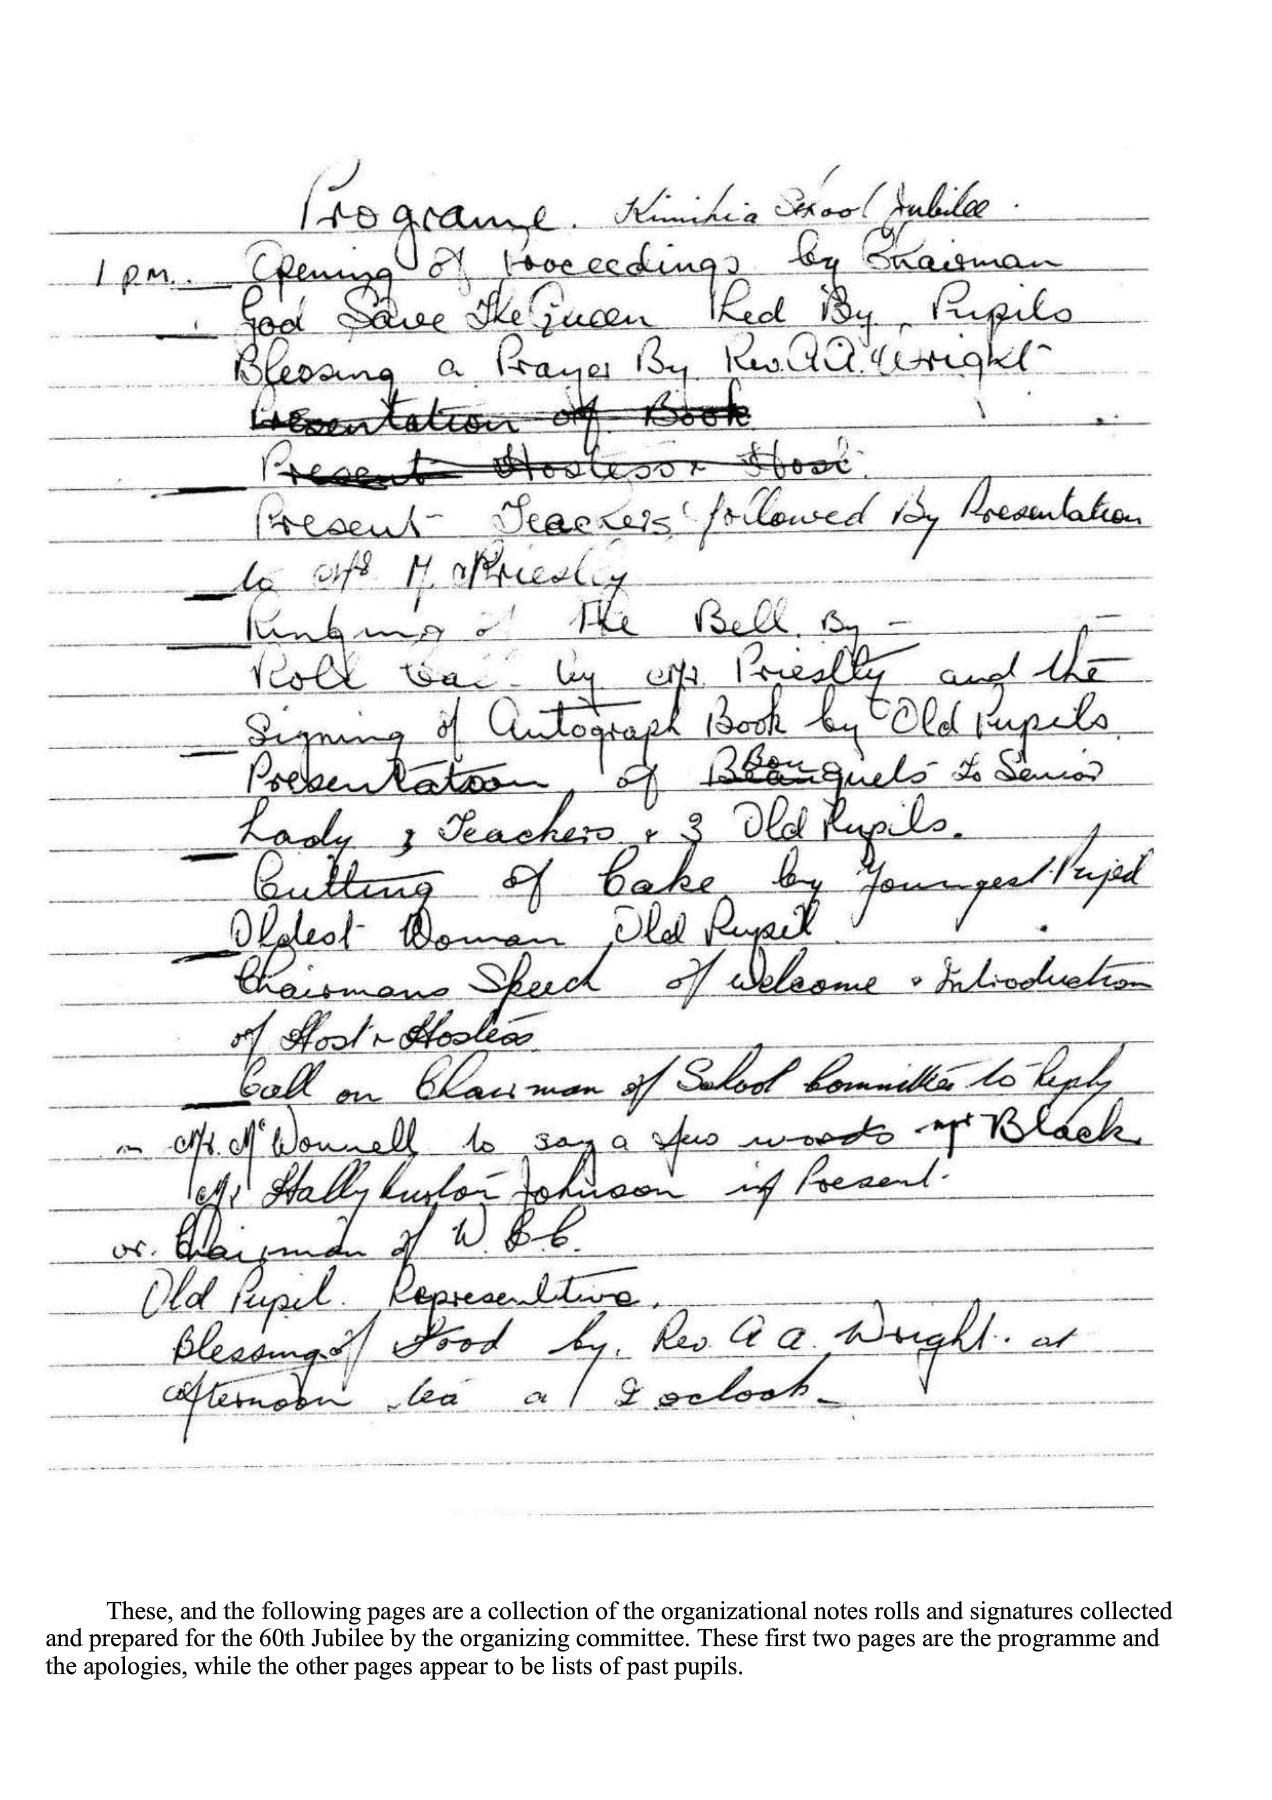 Programe. Kimihia School Jubilee.
1 p.m. Opening of Proceedings by Chairman
God Save The Queen led By Pupils
Blessing a Prayer By Rev. A A. Wright
Presentation of Book
Present Hostess & Host.
Present Teachers followed By Presentation
to Mrs M. Priestly
Ringing of The Bell. By -
Roll Call by Mr. Priestly and the
Signing of Autograph Book by Old Pupils.
Presentation of Bouquets To Senior
Lady 3 Teachers & 3 Old Pupils.
Cutting of Cake by Youngest Pupil
Oldest Woman Old Pupil
Chairmans Speech of Welcome & Introduction
of Host & Hostess
Call on Chairman of School Committee to Reply
Mr. to say a few words Mr Black
Mr Johnson if Present.
or. Chairman of W. B.C.
Old Pupil. Representitive.
Blessing of Food by. Rev. A A. Wright. at
afternoon tea at 2 oclock
These, and the following pages are a collection of the organizational notes rolls and signatures collected
and prepared for the 60th Jubilee by the organizing committee. These first two pages are the programme and
the apologies, while the other pages appear to be lists of past pupils.